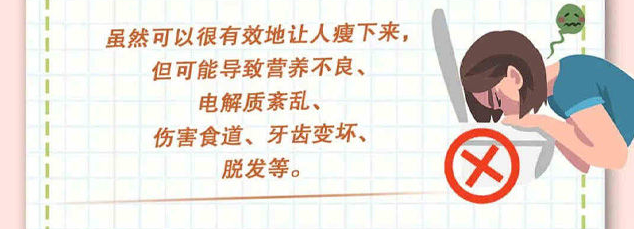 虽然可以很有效地让人瘦下来，
但可能导致营养不良、
电解质紊乱、
伤害食道、牙齿变坏、
脱发等。